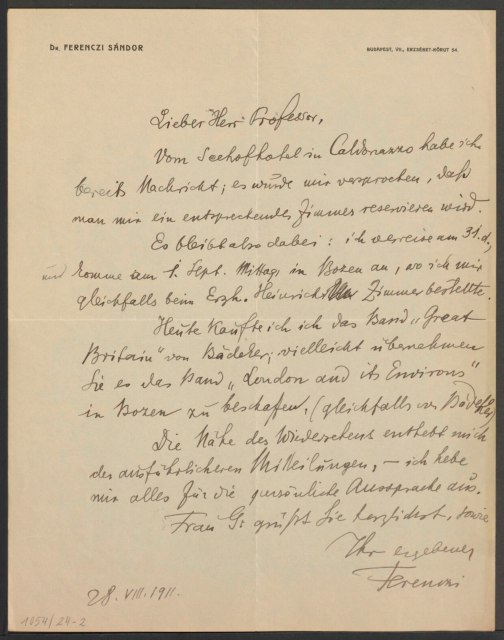 Dr. FERENCZI SÁNDOR
BUDAPEST, VII., ERZSÉBET-KÖRUT 54.
Lieber Herr Professor,
Vom Seehofhotel in Caldonazzo habe ich
bereits Nachricht; es wurde mir versprochen, daß
man mir ein entsprechendes Zimmer reservieren wird.
Es bleibt also dabei: ich verreise am 31. d.,
und komme am 1. Sept. Mittags in Bozen an, wo ich mir
gleichfalls beim Erzh. Heinrich Zimmer bestellte.
Heute kaufte ich ich das Band „Great
Britain" von Bädeker; vielleicht übernehmen
Sie es das Band „London and its Environs"
in Bozen zu beschaffen, (gleichfalls von Bädeker)
Die Nähe des Wiedersehens enthebt mich
der ausführlicheren Mitteilungen, – ich hebe
mir alles für die persönliche Aussprache auf.
Frau G. grüßt Sie herzlichst, sowie
Ihr ergebener
Ferenczi
28. VIII. 1911.
1054/24-2